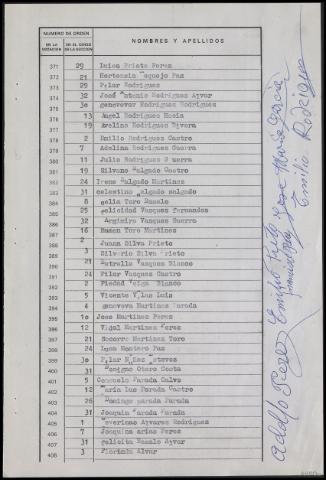 NUMERO DE ORDEN
NOMBRES Y APELLIDOS
EN LA VOTACION
EN EL CENSO DE LA SECCION
371 29 Luisa Prieto Perez
372 21 Hortensia Vaquejo Paz
373 29 Pilar Rodriguez
374 32 José Antonio Rodriguez Alvar
375 30 genevovor Rodriguez Rodriguez
376 13 Angel Rodriguez Nocia
377 19 Avelino Rodriguez Rivera
378 2 Emilio Rodriguez Castro
379 7 Adelina Rodriguez Guerra
380 11 Julio Rodriguez Guerra
381 19 Silvano Salgado Castro
382 24 Irene Salgado Martinez
383 31 celestino salgado salgado
384 8 gelia Toro Basalo
385 25 gelicidad Vazquez Fernandez
386 32 Argimiro Vazquez Guerra
387 16 Ramon Toro Martinez
388 2 Juana Silva Prieto
389 3 Silverio Silva Prieto
390 21 Estrella Vazquez Blanco
391 24 Pilar Vazquez Castro
392 2 Piedad Veiga Blanco
393 5 Vicente Luis
394 4 genoveva Martinez Parada
395 10 Jose Martinez Perez
396 12 Vidal Martinez Perez
397 21 Socorro Martinez Toro
398 24 Montero Paz
399 30 Pilar Esteves
400 31 Benigno Otero Costa
401 9 Consuelo Parada Calvo
402 12 Maria Luz Parada Castro
403 26 Domingo parada Parada
404 31 Joaquin Parada Parada
405 1 Severinao Alvarez Rodriguez
406 7 Joaquina arias Perez
407 31 gelicita Basalo Alvar
408 3 Florinda Alvar
Adolfo Perez
Emilio Prieto
Jose Maria Garcia
Emilio Rodriguez